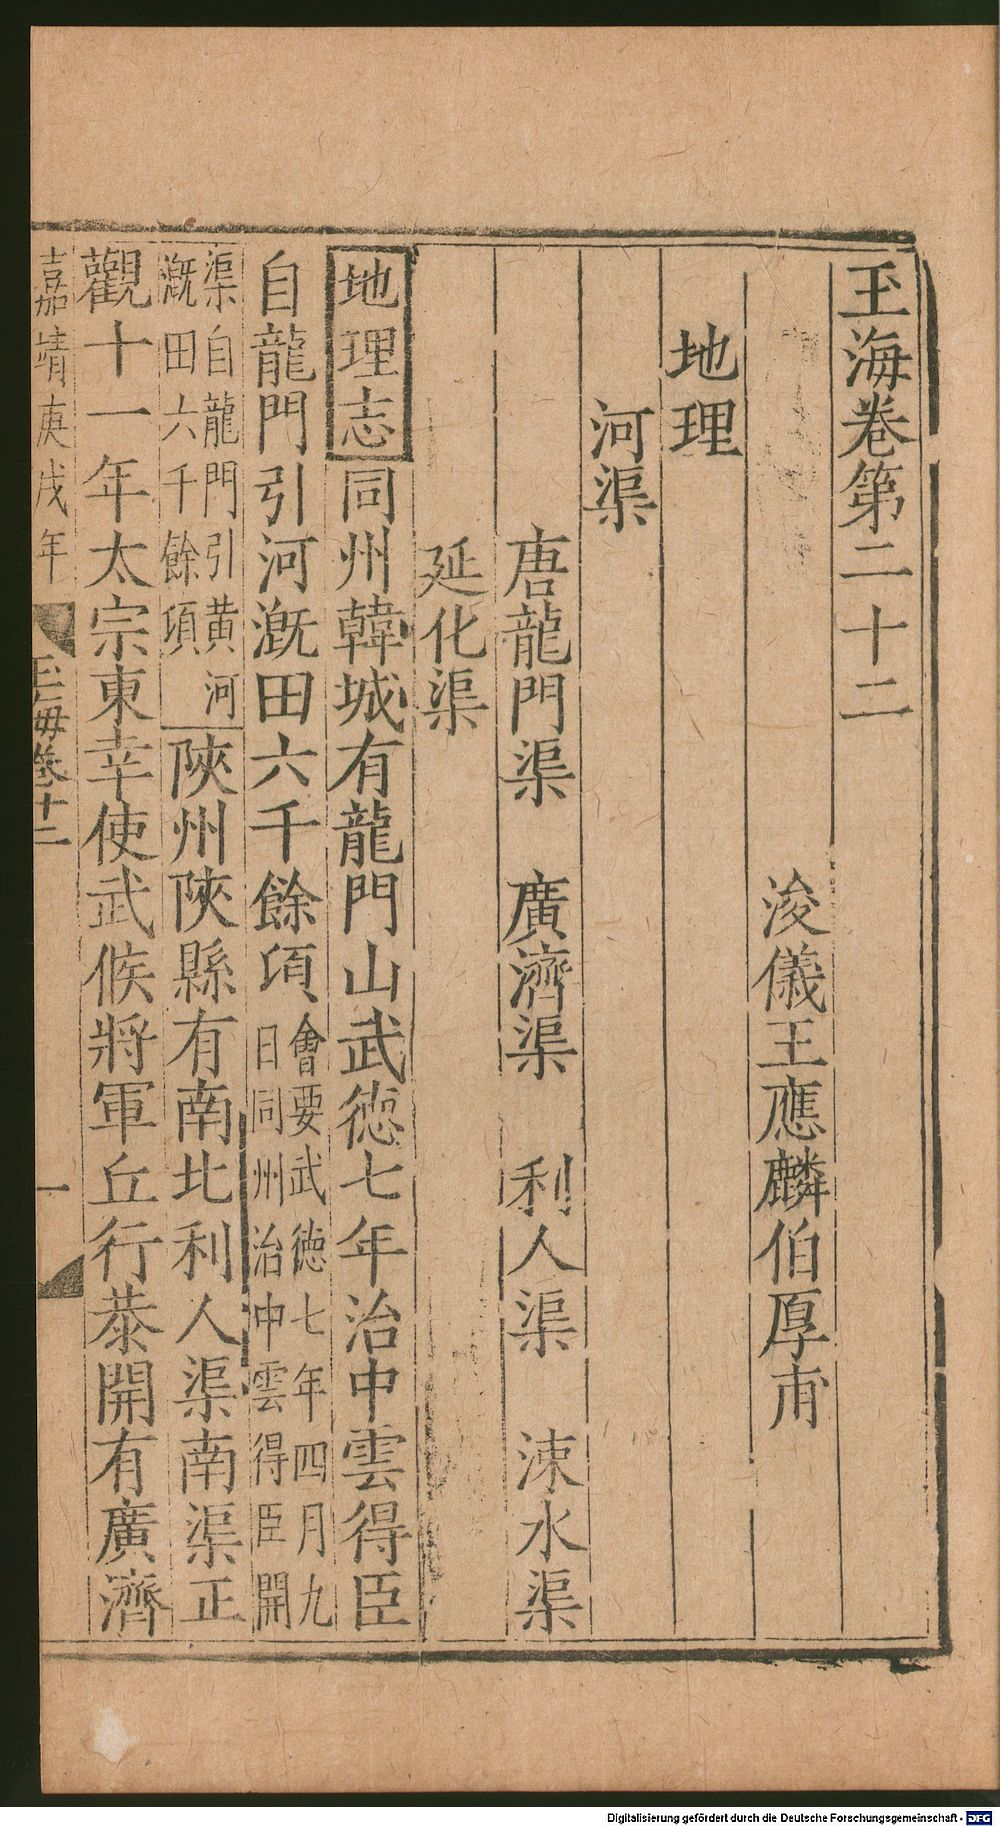 玉海卷第二十二
浚儀王應麟伯厚甫
地理
河渠
唐龍門渠　廣濟渠　利人渠　涑水渠
延化渠
地理志同州韓城有龍門山武德七年治中雲得臣
自龍門引河溉田六千餘頃會要武德七年四月九
日同州治中雲得臣開
渠自龍門引黃河
溉田六千餘頃
陝州陝縣有南北利人渠南渠正
觀十一年太宗東幸使武候將軍丘行恭開有廣濟
嘉靖庚戌年
玉海卷廿二
一
Digitalisierung gefördert durch die Deutsche Forschungsgemeinschaft - DFG